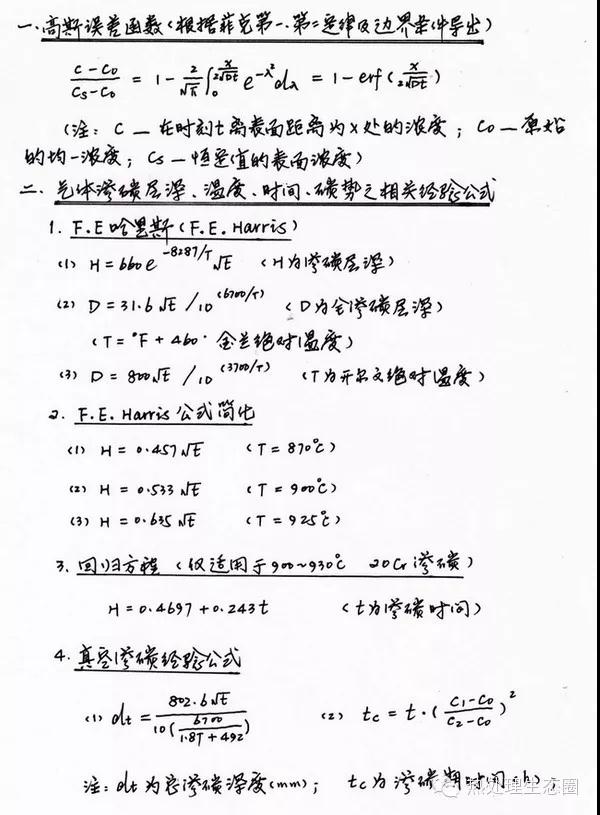 一、高斯误差函数(根据菲克第一、第二定律及边界条件导出)
(C-C0)/(Cs-C0) = 1 - (2/√π)∫₀^(x/(2√Dt)) e^(-λ²)dλ = 1 - erf(x/(2√Dt))
(注: C — 在时刻t离表面距离为x处的浓度; C0 — 原始
的均一浓度; Cs — 恒定值的表面浓度)
二、气体渗碳层深、温度、时间、碳势之相关经验公式
1. F.E哈里斯(F.E.Harris)
(1) H = 660e^(-8287/T)√t (H为渗碳层深)
(2) D = 31.6√t / 10^(6700/T) (D为全渗碳层深)
(T = °F + 460· 金兰绝对温度)
(3) D = 800√t / 10^(3700/T) (T为开尔文绝对温度)
2. F.E.Harris公式简化
(1) H = 0.457√t (T = 870℃)
(2) H = 0.533√t (T = 900℃)
(3) H = 0.635√t (T = 925℃)
3. 回归方程(仅适用于900~930℃ 20Cr渗碳)
H = 0.4697 + 0.243t (t为渗碳时间)
4. 真空渗碳经验公式
(1) dt = 802.6√t / 10(6700/(1.8T+492)) (2) tc = t·((C1-C0)/(C2-C0))²
注: dt为总渗碳深度(mm); tc为渗碳期时间(h);
热处理生态圈